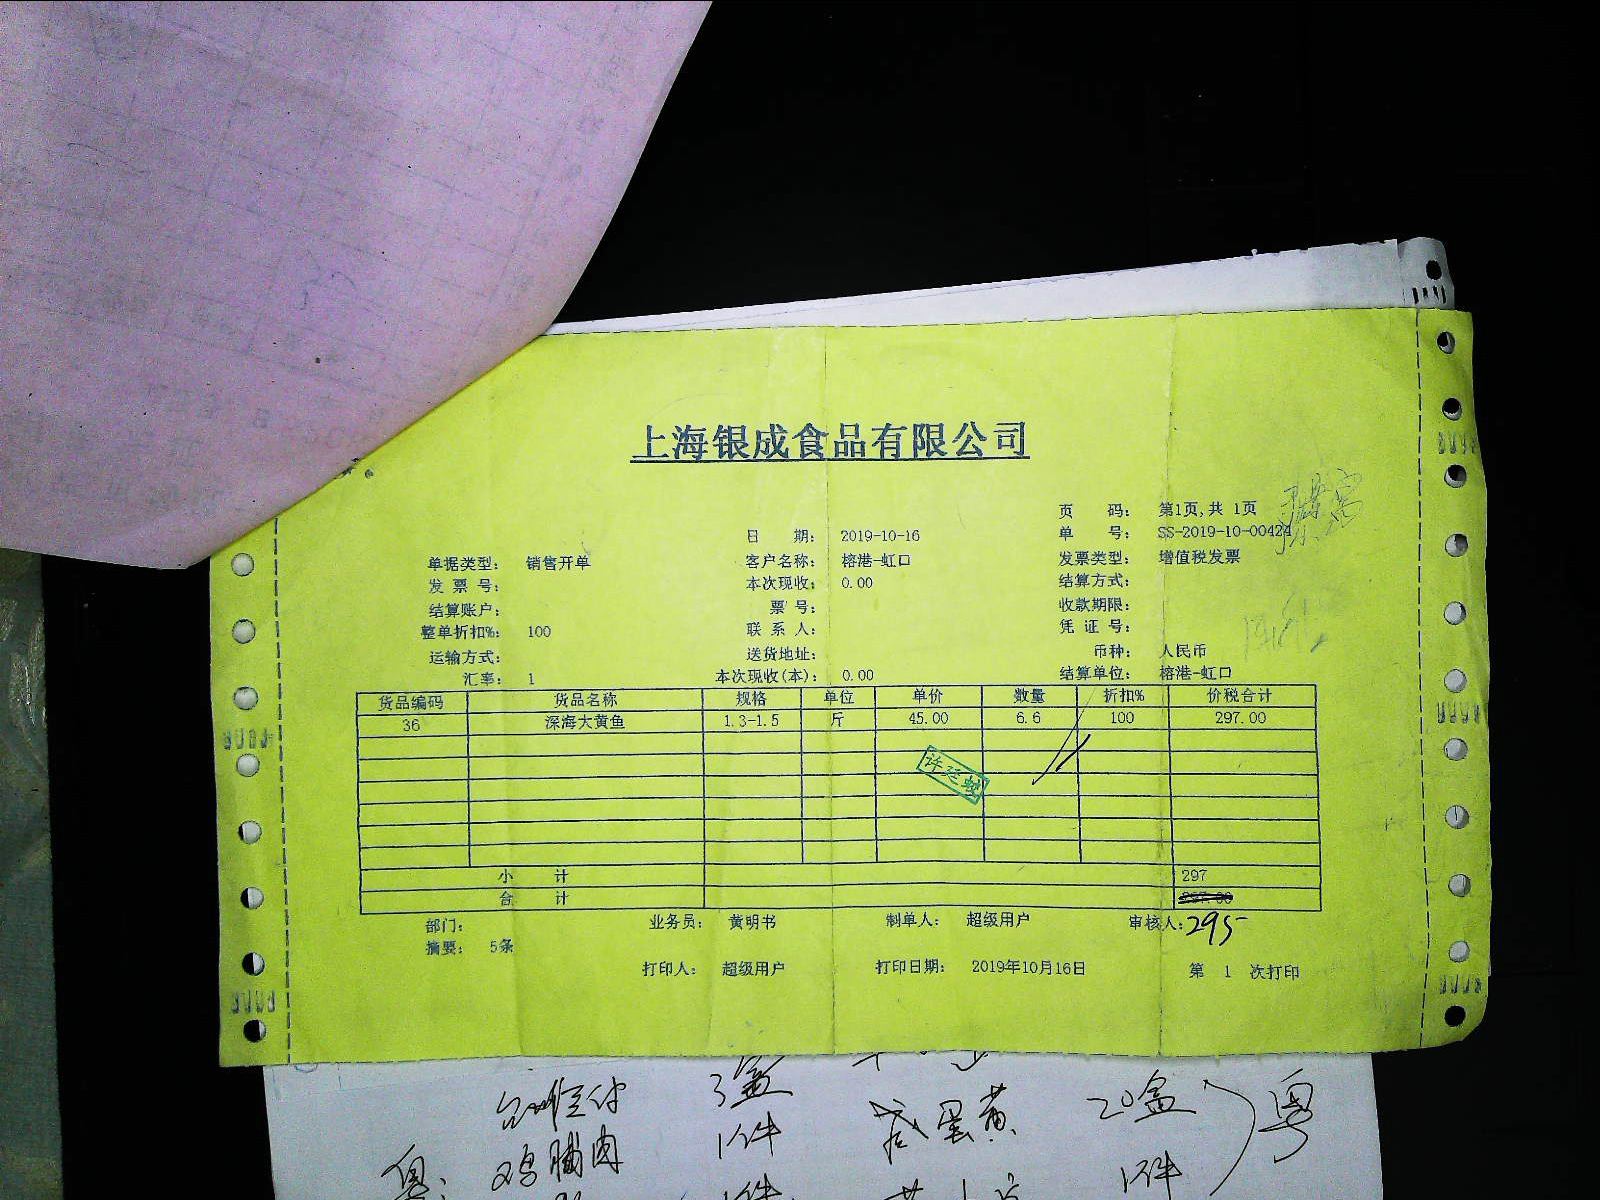 上海银成食品有限公司
页 码: 第1页,共 1页
日 期: 2019-10-16 单 号: SS-2019-10-00424
单据类型: 销售开单 客户名称: 榕港-虹口 发票类型: 增值税发票
发 票 号: 本次现收: 0.00 结算方式:
结算账户: 票 号: 收款期限:
整单折扣%: 100 联 系 人: 凭 证 号:
运输方式: 送货地址: 币种: 人民币
汇率: 1 本次现收(本): 0.00 结算单位: 榕港-虹口
货品编码 货品名称 规格 单位 单价 数量 折扣% 价税合计
36 深海大黄鱼 1.3-1.5 斤 45.00 6.6 100 297.00
小 计 297
合 计 297.00
部门: 业务员: 黄明书 制单人: 超级用户 审核人: 295
摘要: 5条
打印人: 超级用户 打印日期: 2019年10月16日 第 1 次打印
3盒 咸蛋黄 20盒 粤
鸡脯肉 1件 1件